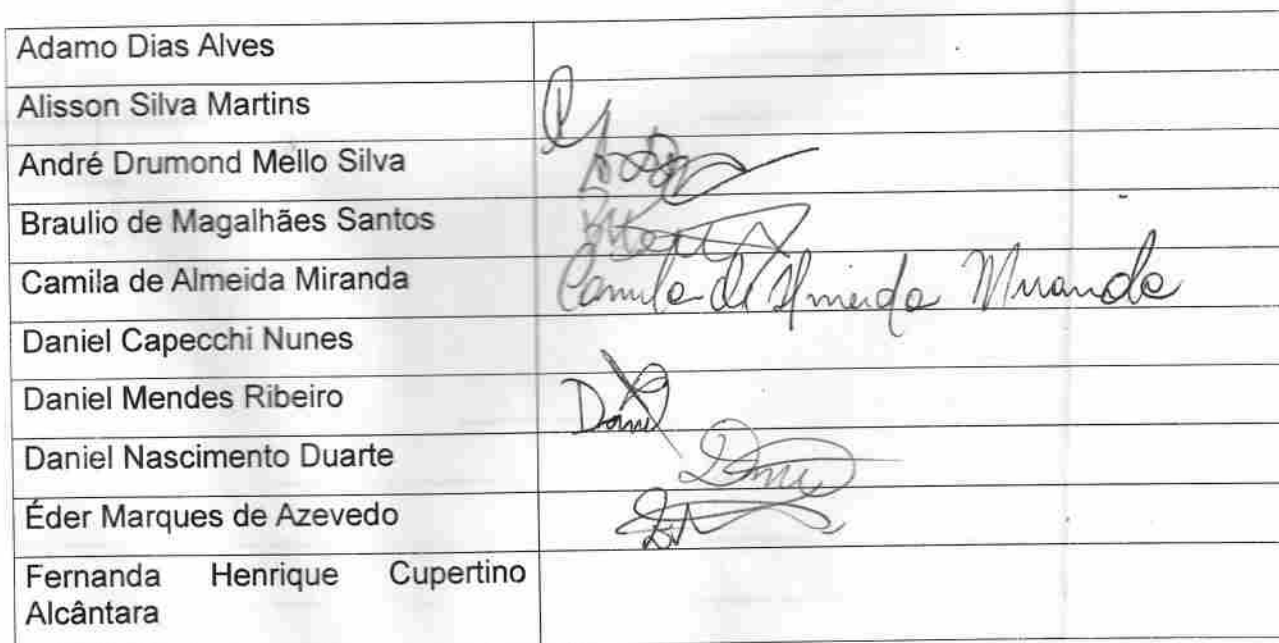 Adamo Dias Alves
Alisson Silva Martins
André Drumond Mello Silva
Braulio de Magalhães Santos
Camila de Almeida Miranda Camila de Almeida Miranda
Daniel Capecchi Nunes
Daniel Mendes Ribeiro Daniel
Daniel Nascimento Duarte
Éder Marques de Azevedo
Fernanda Henrique Cupertino
Alcântara